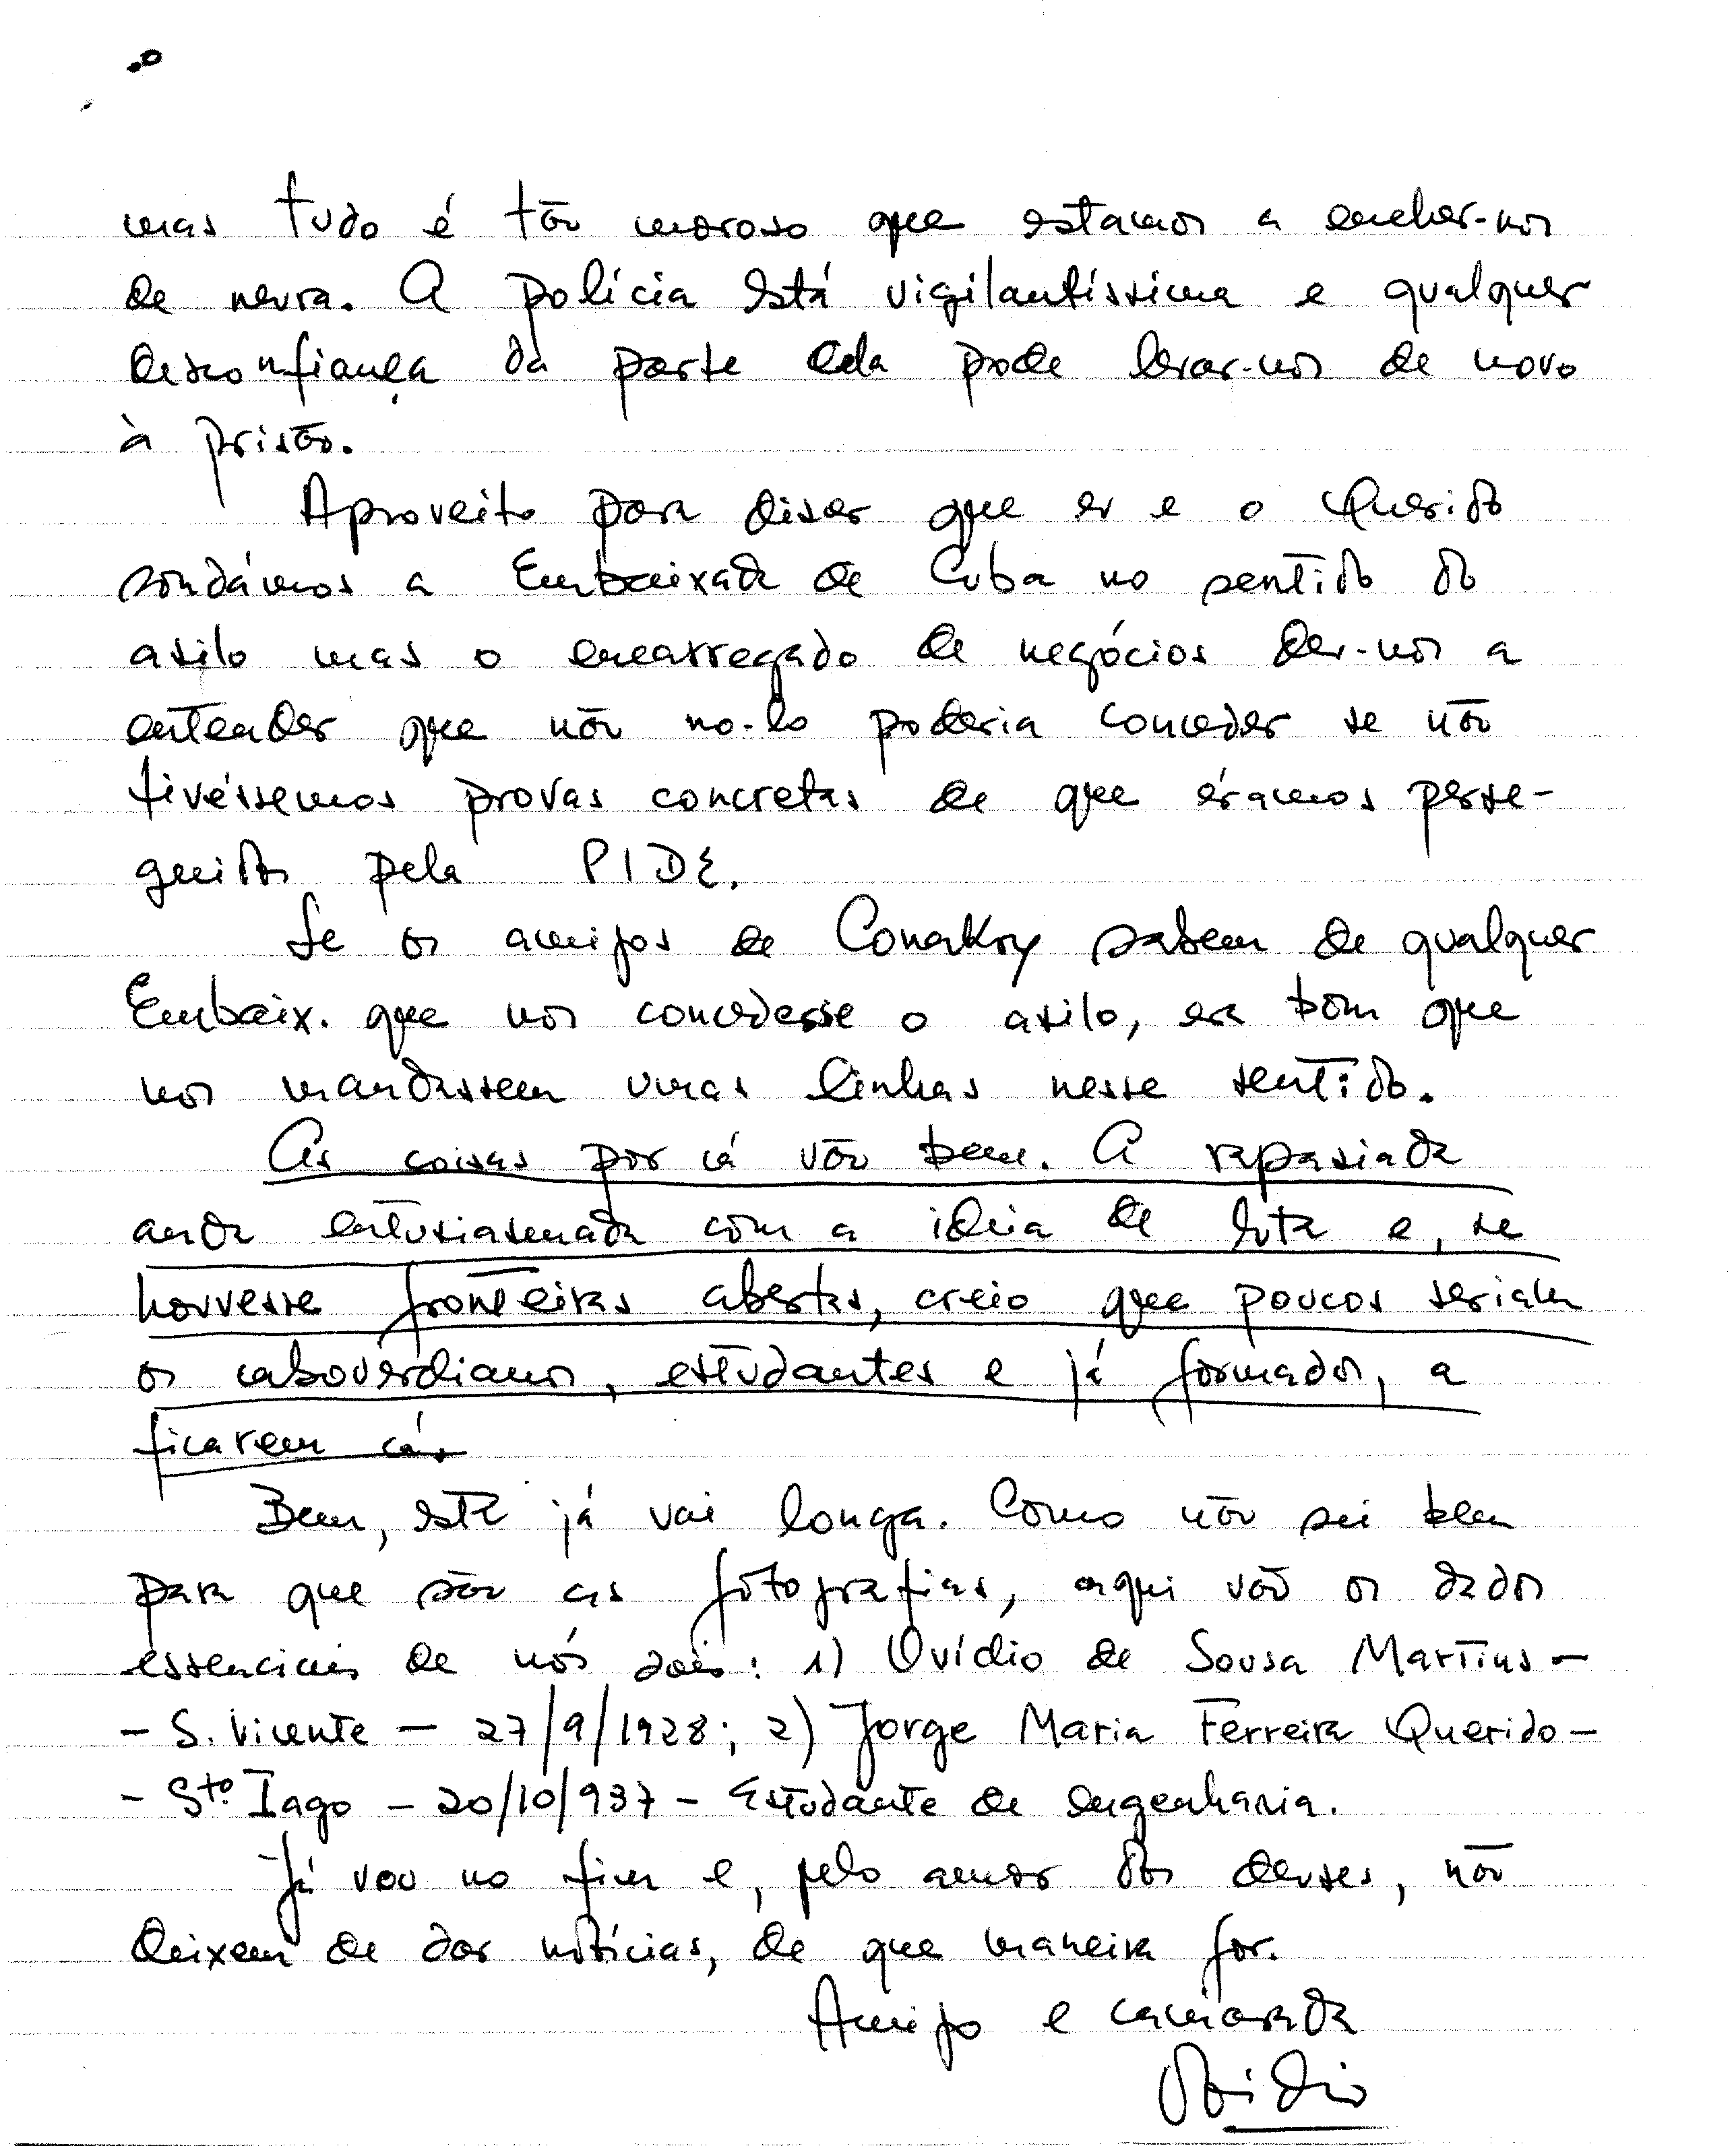 mas tudo é tão moroso que estamos a encher-nos
de nevra. A polícia está vigilantíssima e qualquer
desconfiança da parte dela pode levar-nos de novo
à prisão.
Aproveito para dizer que eu e o Querido
sondámos a Embaixada de Cuba no sentido do
asilo mas o encarregado de negócios deu-nos a
entender que não no-lo poderia conceder se não
tivéssemos provas concretas de que éramos perse-
guidos pela PIDE.
Se os amigos de Conakry sabem de qualquer
Embaix. que nos concedesse o asilo, era bom que
nos mandassem umas linhas nesse sentido.
As coisas por cá vão bem. A rapaziada
anda entusiasmada com a ideia de luta e, se
houvesse fronteiras abertas, creio que poucos seriam
os caboverdianos, estudantes e já formados, a
ficarem cá.
Bem, esta já vai longa. Como não sei bem
para que são as fotografias, aqui vão os dados
essenciais de nós dois: 1) Ovídio de Sousa Martins -
- S. Vicente - 27/9/1928; 2) Jorge Maria Ferreira Querido -
- Sto. Iago - 20/10/937 - Estudante de engenharia.
Já vou no fim e, pelo amor dos deuses, não
deixem de dar notícias, de que maneira for.
Amigo e camarada
Ovídio